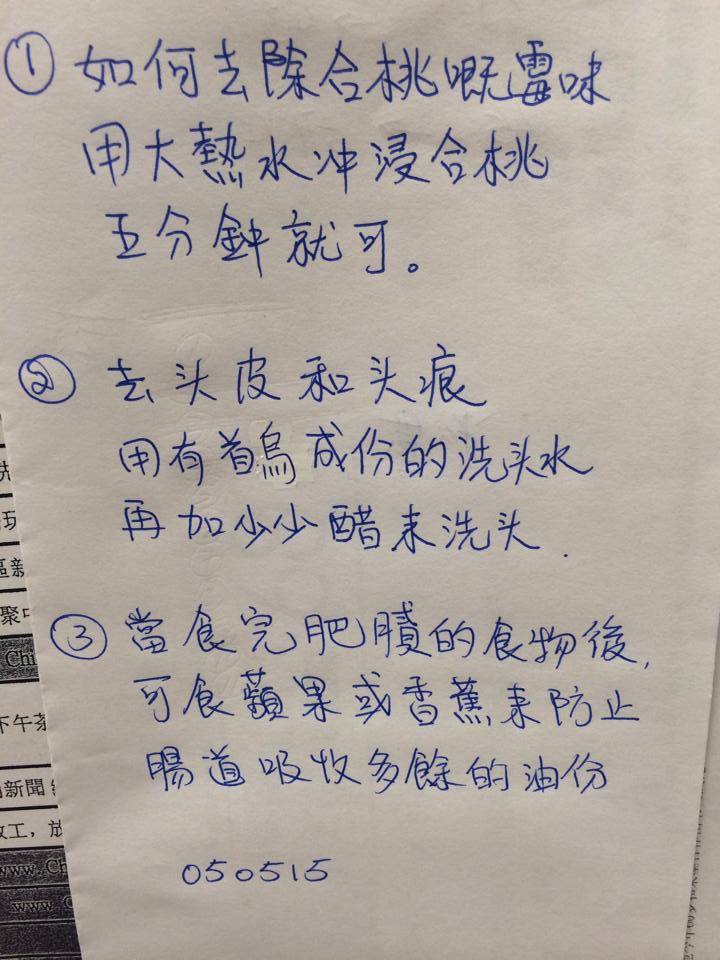 ① 如何去除合桃嘅霉味
用大熱水冲浸合桃
五分鈡就可。
② 去头皮和头痕
用有首烏成份的洗头水
再加少少醋来洗头.
③ 當食完肥膩的食物後,
可食蘋果或香蕉来防止
腸道吸收多餘的油份
050515
玩
區新
聚中
Chi
下午茶
新聞
工，放
www.Ch
www.C